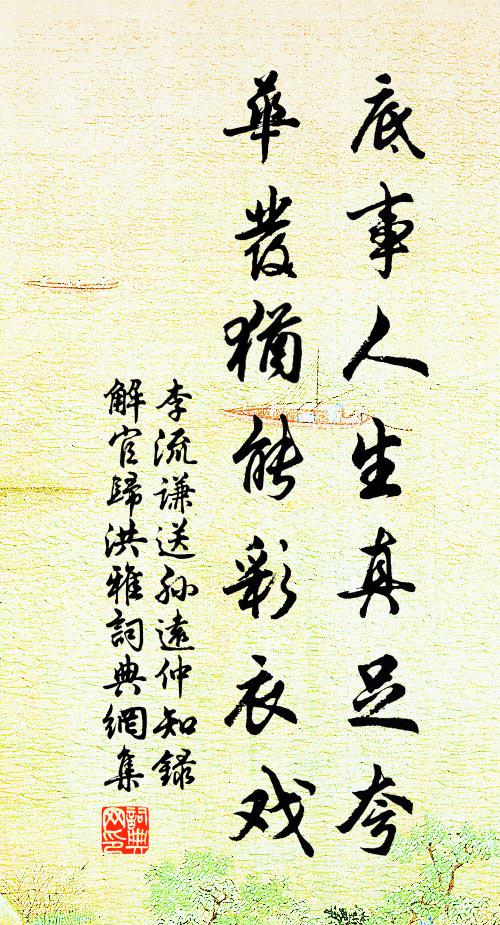 底事人生真足夸
華发猶能彩衣戏
李流謙送孙遠仲知録
解官歸洪雅詞典網集
詞典网印